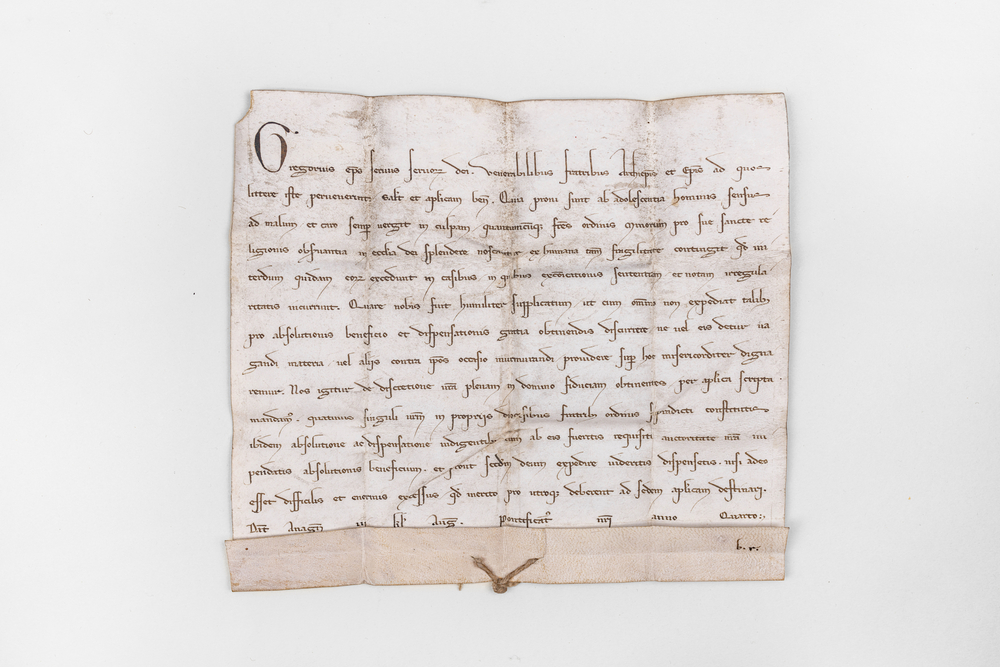 Gregorius ep̄s servus servoꝝ dei. venerabilibus fratribus Archiep̄is et Ep̄is ad quos
littere iste pervenerint salt̄ et aplicam ben̄. Quia proni sunt ab adolescentia hominis sensus
ad malum et caro semp̱ vergit in culpam, quantumcūqꝫ fr̄es ordinis minorum pro sue sancte re
ligionis obs̄uantia in eccl̄ia dei splendere noscantur ex humana tam̄ fragilitate contingit qd̄ in
terdum quidam eoꝝ excedunt in casibus, in quibus excōicationis sententiam et notam irregula
ritatis incurrunt. Quare nobis fuit humiliter supplicatum, ut cum om̄ino non expediat talibꝫ
pro absolutionis beneficio et dispensationis gratia obtinendis discurrere ne vel eis detur va
gandi materia, vel aliis contra ip̄os occasio murmurandi providere sup̱ hoc misericorditer digna
remur. Nos igitur de discretione vr̄a plenam in domino fiduciam obtinentes, per aplica scripta
mandam⁹, quatinus singuli vr̄m in propriis diocesibus fratribꝫ ordinis supradicti constitutis
ibidem absolutione ac dispensatione indigentibꝫ cum ab eis fueritis requisiti auctoritate nr̄a im
pendatis absolutionis beneficium, et prout scd̄m deum expedire videritis dispensetis. nisi adeo
esset difficilis et enormis excessus, qd̄ merito pro utroqꝫ deberent ad sedem aplicam destinari.
Dat̄ Anagn̄ kl̄ Auḡ. Pontificat⁹ nr̄i anno Quarto:.
b. r.